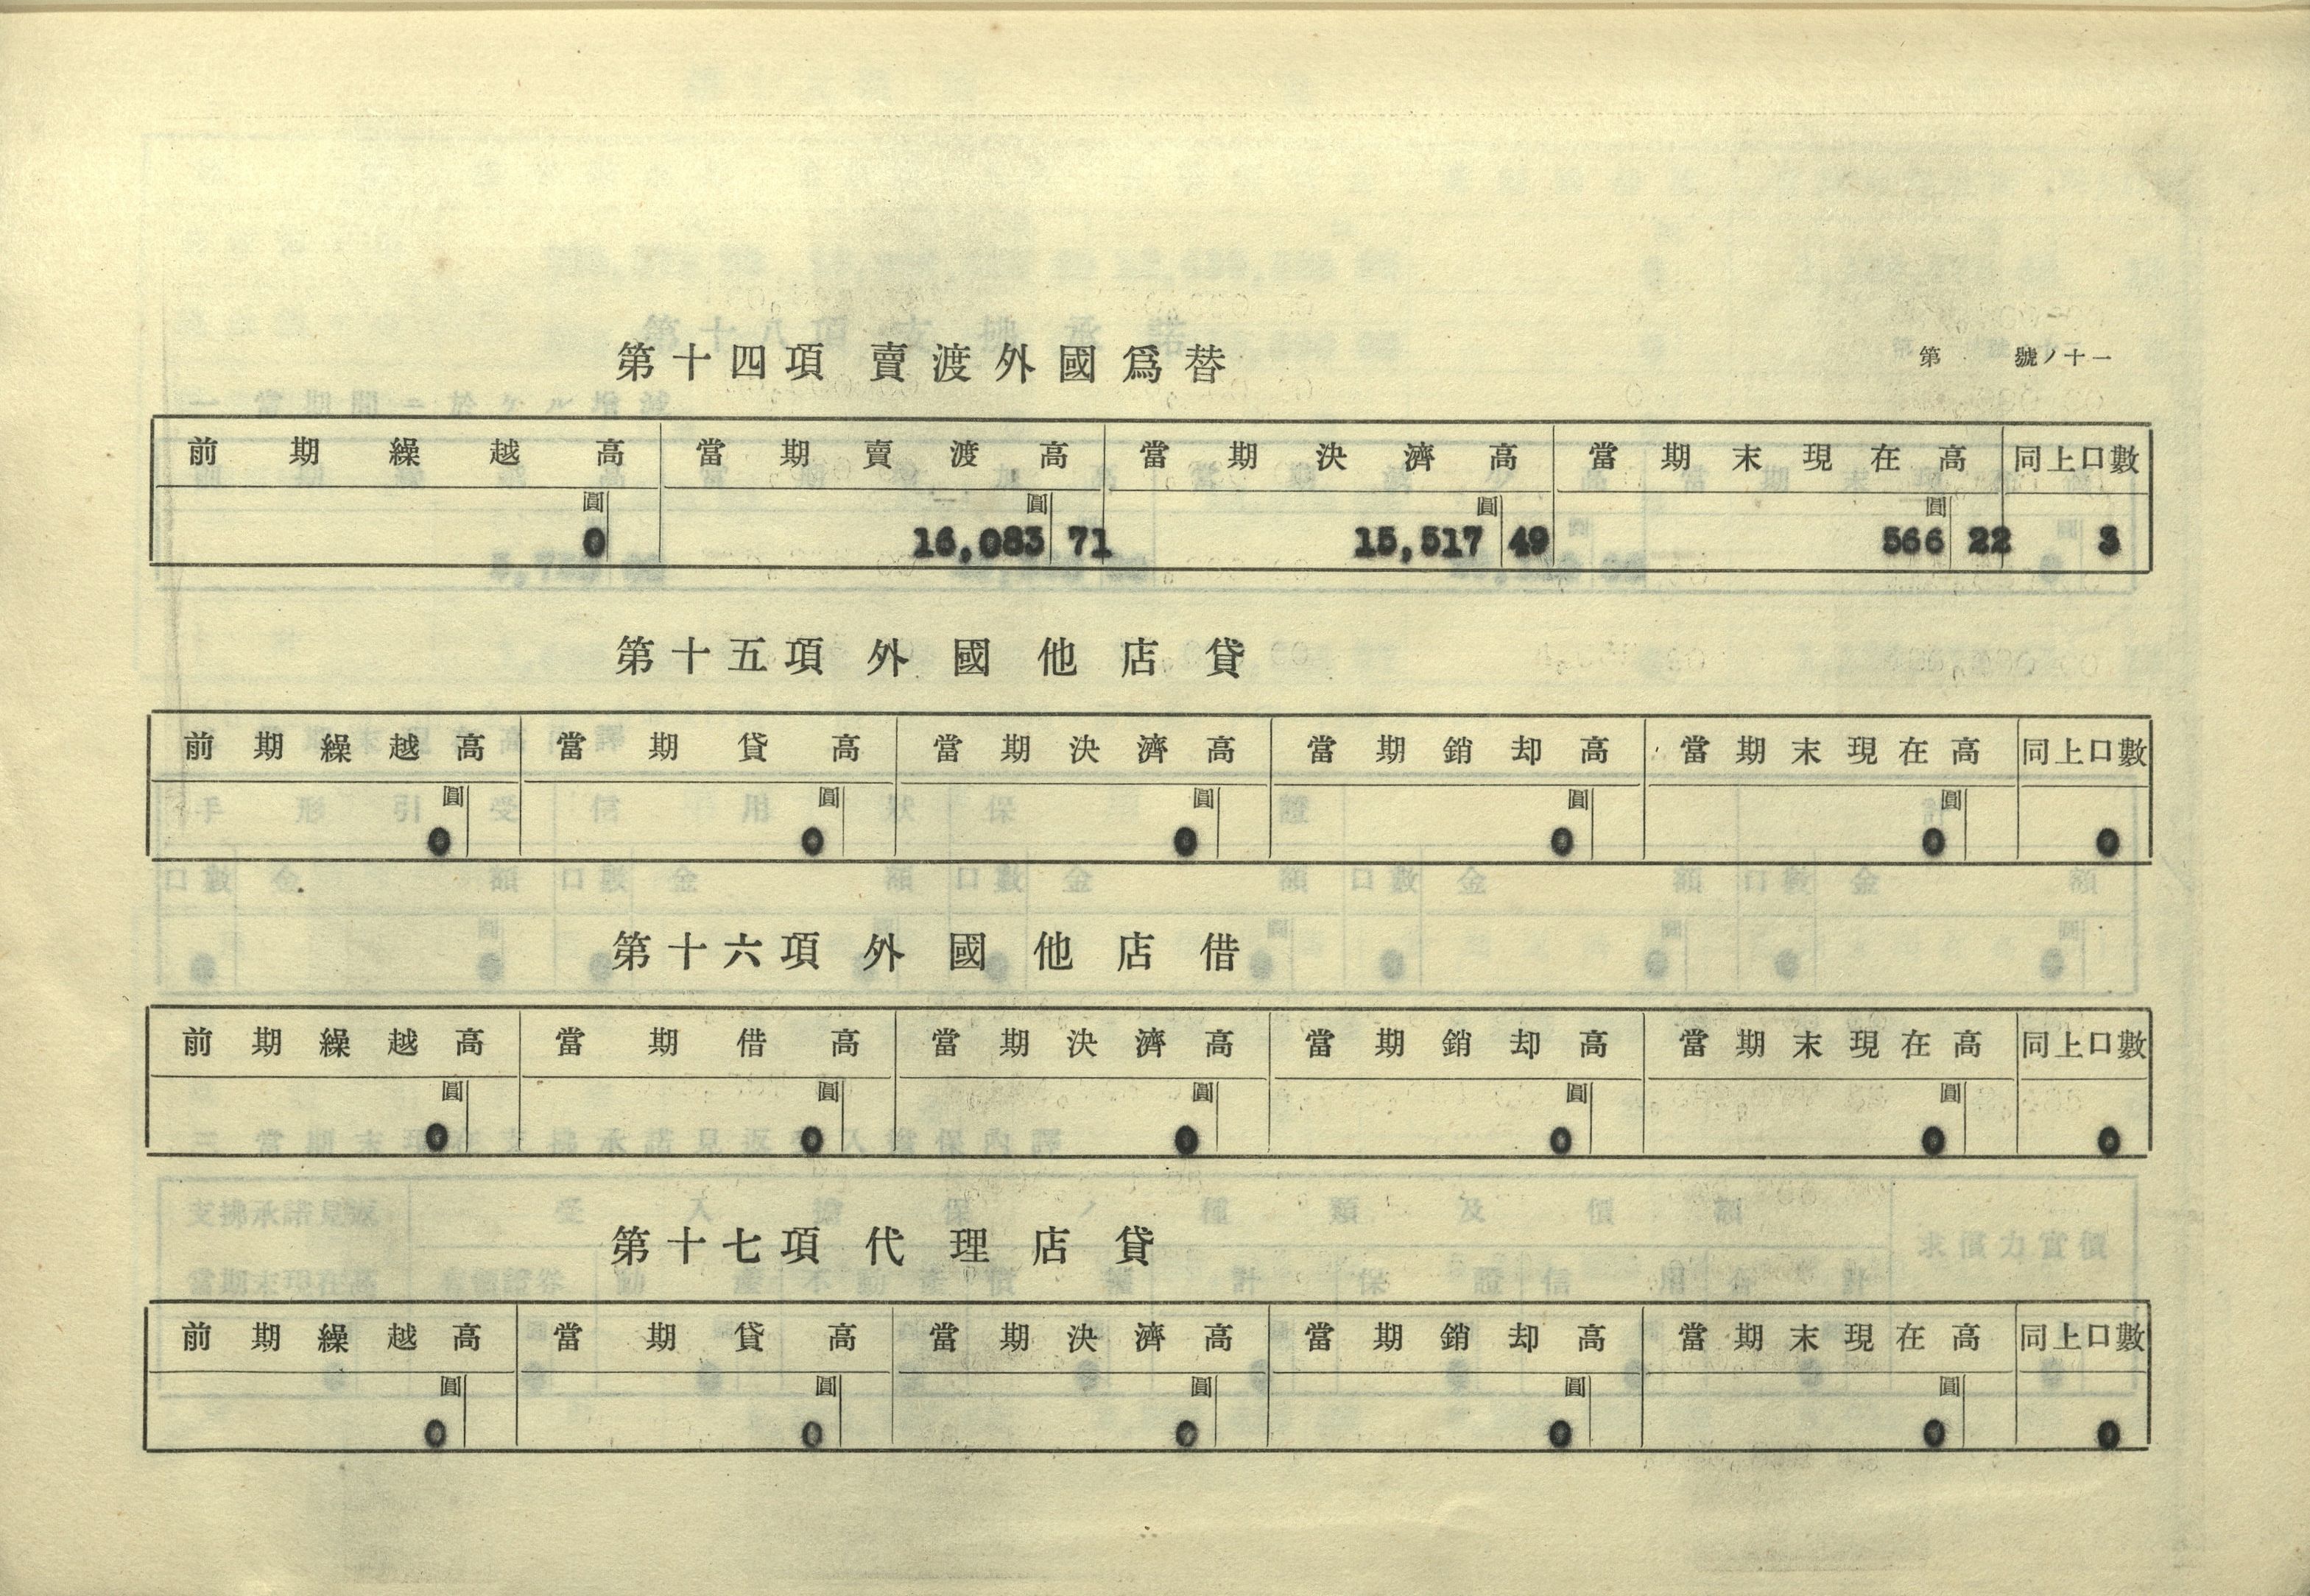 第十四項 賣渡外國爲替
第 號ノ十一
前期繰越高 當期賣渡高 當期決濟高 當期末現在高 同上口數
圓 圓 圓 圓
0 16,083 71 15,517 49 566 22 3
第十五項 外國他店貸
前期繰越高 當期貸高 當期決濟高 當期銷却高 當期末現在高 同上口數
圓 圓 圓 圓 圓
0 0 0 0 0 0
第十六項 外國他店借
前期繰越高 當期借高 當期決濟高 當期銷却高 當期末現在高 同上口數
圓 圓 圓 圓 圓
0 0 0 0 0 0
第十七項 代理店貸
前期繰越高 當期貸高 當期決濟高 當期銷却高 當期末現在高 同上口數
圓 圓 圓 圓 圓
0 0 0 0 0 0